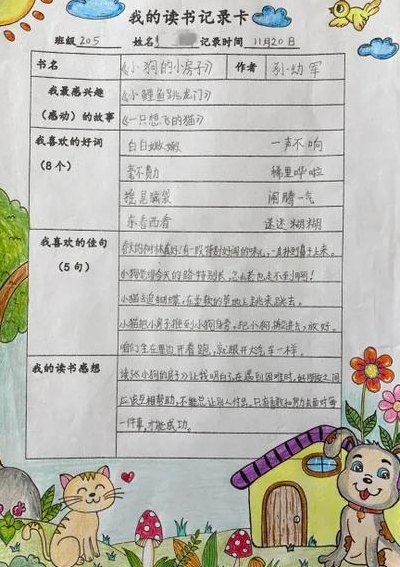 我的读书记录卡
班级 205 姓名 记录时间 11月20日
书名 《小狗的小房子》 作者 孙幼军
我最感兴趣（感动）的故事 《小鲤鱼跳龙门》
《一只想飞的猫》
我喜欢的好词（8个） 白白嫩嫩 一声不响
毫不费力 稀里哗啦
摇晃脑袋 闹腾一气
东看西看 迷迷糊糊
我喜欢的佳句（5句） 春天的树林真好！有一股特别好闻的味儿，一直扑到鼻子上来。
小狗觉得今天的路特别长，怎么老也走不到河呢！
小猫去追蝴蝶，在柔软的草地上跳来跳去。
小猫把小房子推到小狗身旁，把小狗搬进去，放好。
咱们坐在里边开着跑，就跟开火车一样。
我的读书感想 读《小狗的小房子》让我明白了，在遇到困难时，好朋友之间
应该互相帮助，不能总让别人付出。只有勇敢和努力去面对每
一件事，才能成功。